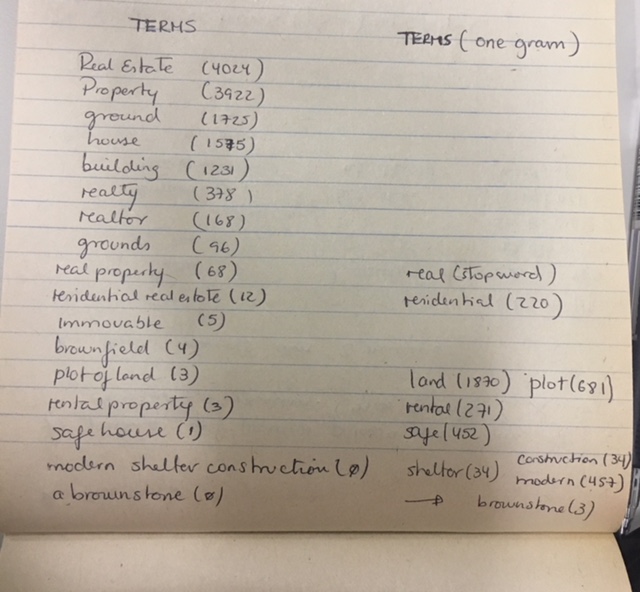 TERMS TERMS (one gram)
Real Estate (4024)
Property (3922)
ground (1725)
house (1575)
building (1231)
realty (378)
realtor (168)
grounds (96)
real property (68) real (stopword)
residential real estate (12) residential (220)
Immovable (5)
brownfield (4)
plot of land (3) land (1870) plot (681)
rental property (3) rental (271)
safe house (1) safe (452)
modern shelter construction (ø) sheltor (34) construction (34)
modern (457)
a brownstone (ø) → brownstone (3)